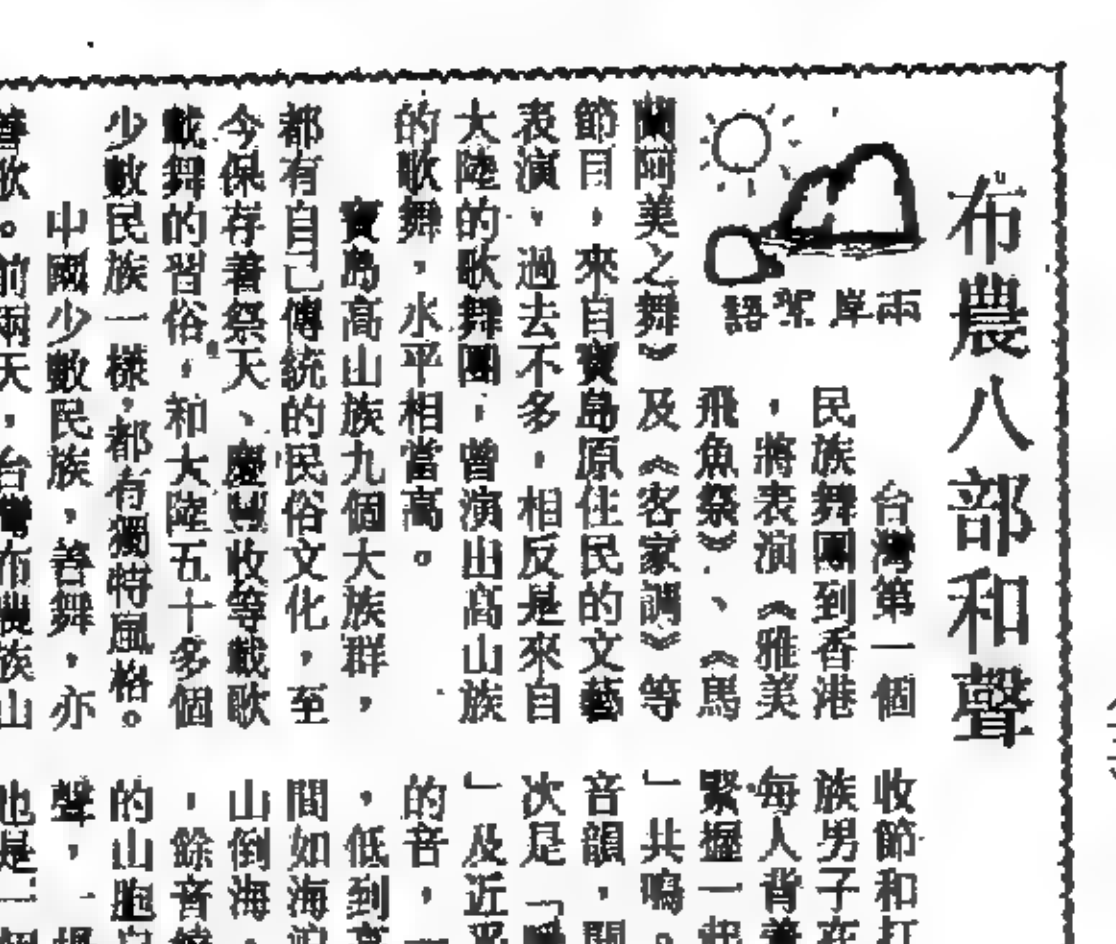 布農八部和聲
兩岸絮語
台灣第一個
民族舞團到香港
，將表演《雅美
飛魚祭》、《馬
蘭阿美之舞》及《客家調》等
節目，來自寶島原住民的文藝
表演，過去不多，相反是來自
大陸的歌舞團，曾演出高山族
的歌舞，水平相當高。
寶島高山族九個大族群，
都有自己傳統的民俗文化，至
今保存着祭天、慶豐收等載歌
載舞的習俗，和大陸五十多個
少數民族一樣，都有獨特風格。
中國少數民族，善舞，亦
善歌。前兩天，台灣布農族山
收節和打
族男子在
每人背着
緊握一起
」共鳴。
音韻，開
次是「
」及近乎
的音，一
，低到高
間如海浪
山倒海，
，餘音繞
的山胞
聲，一
也是一個